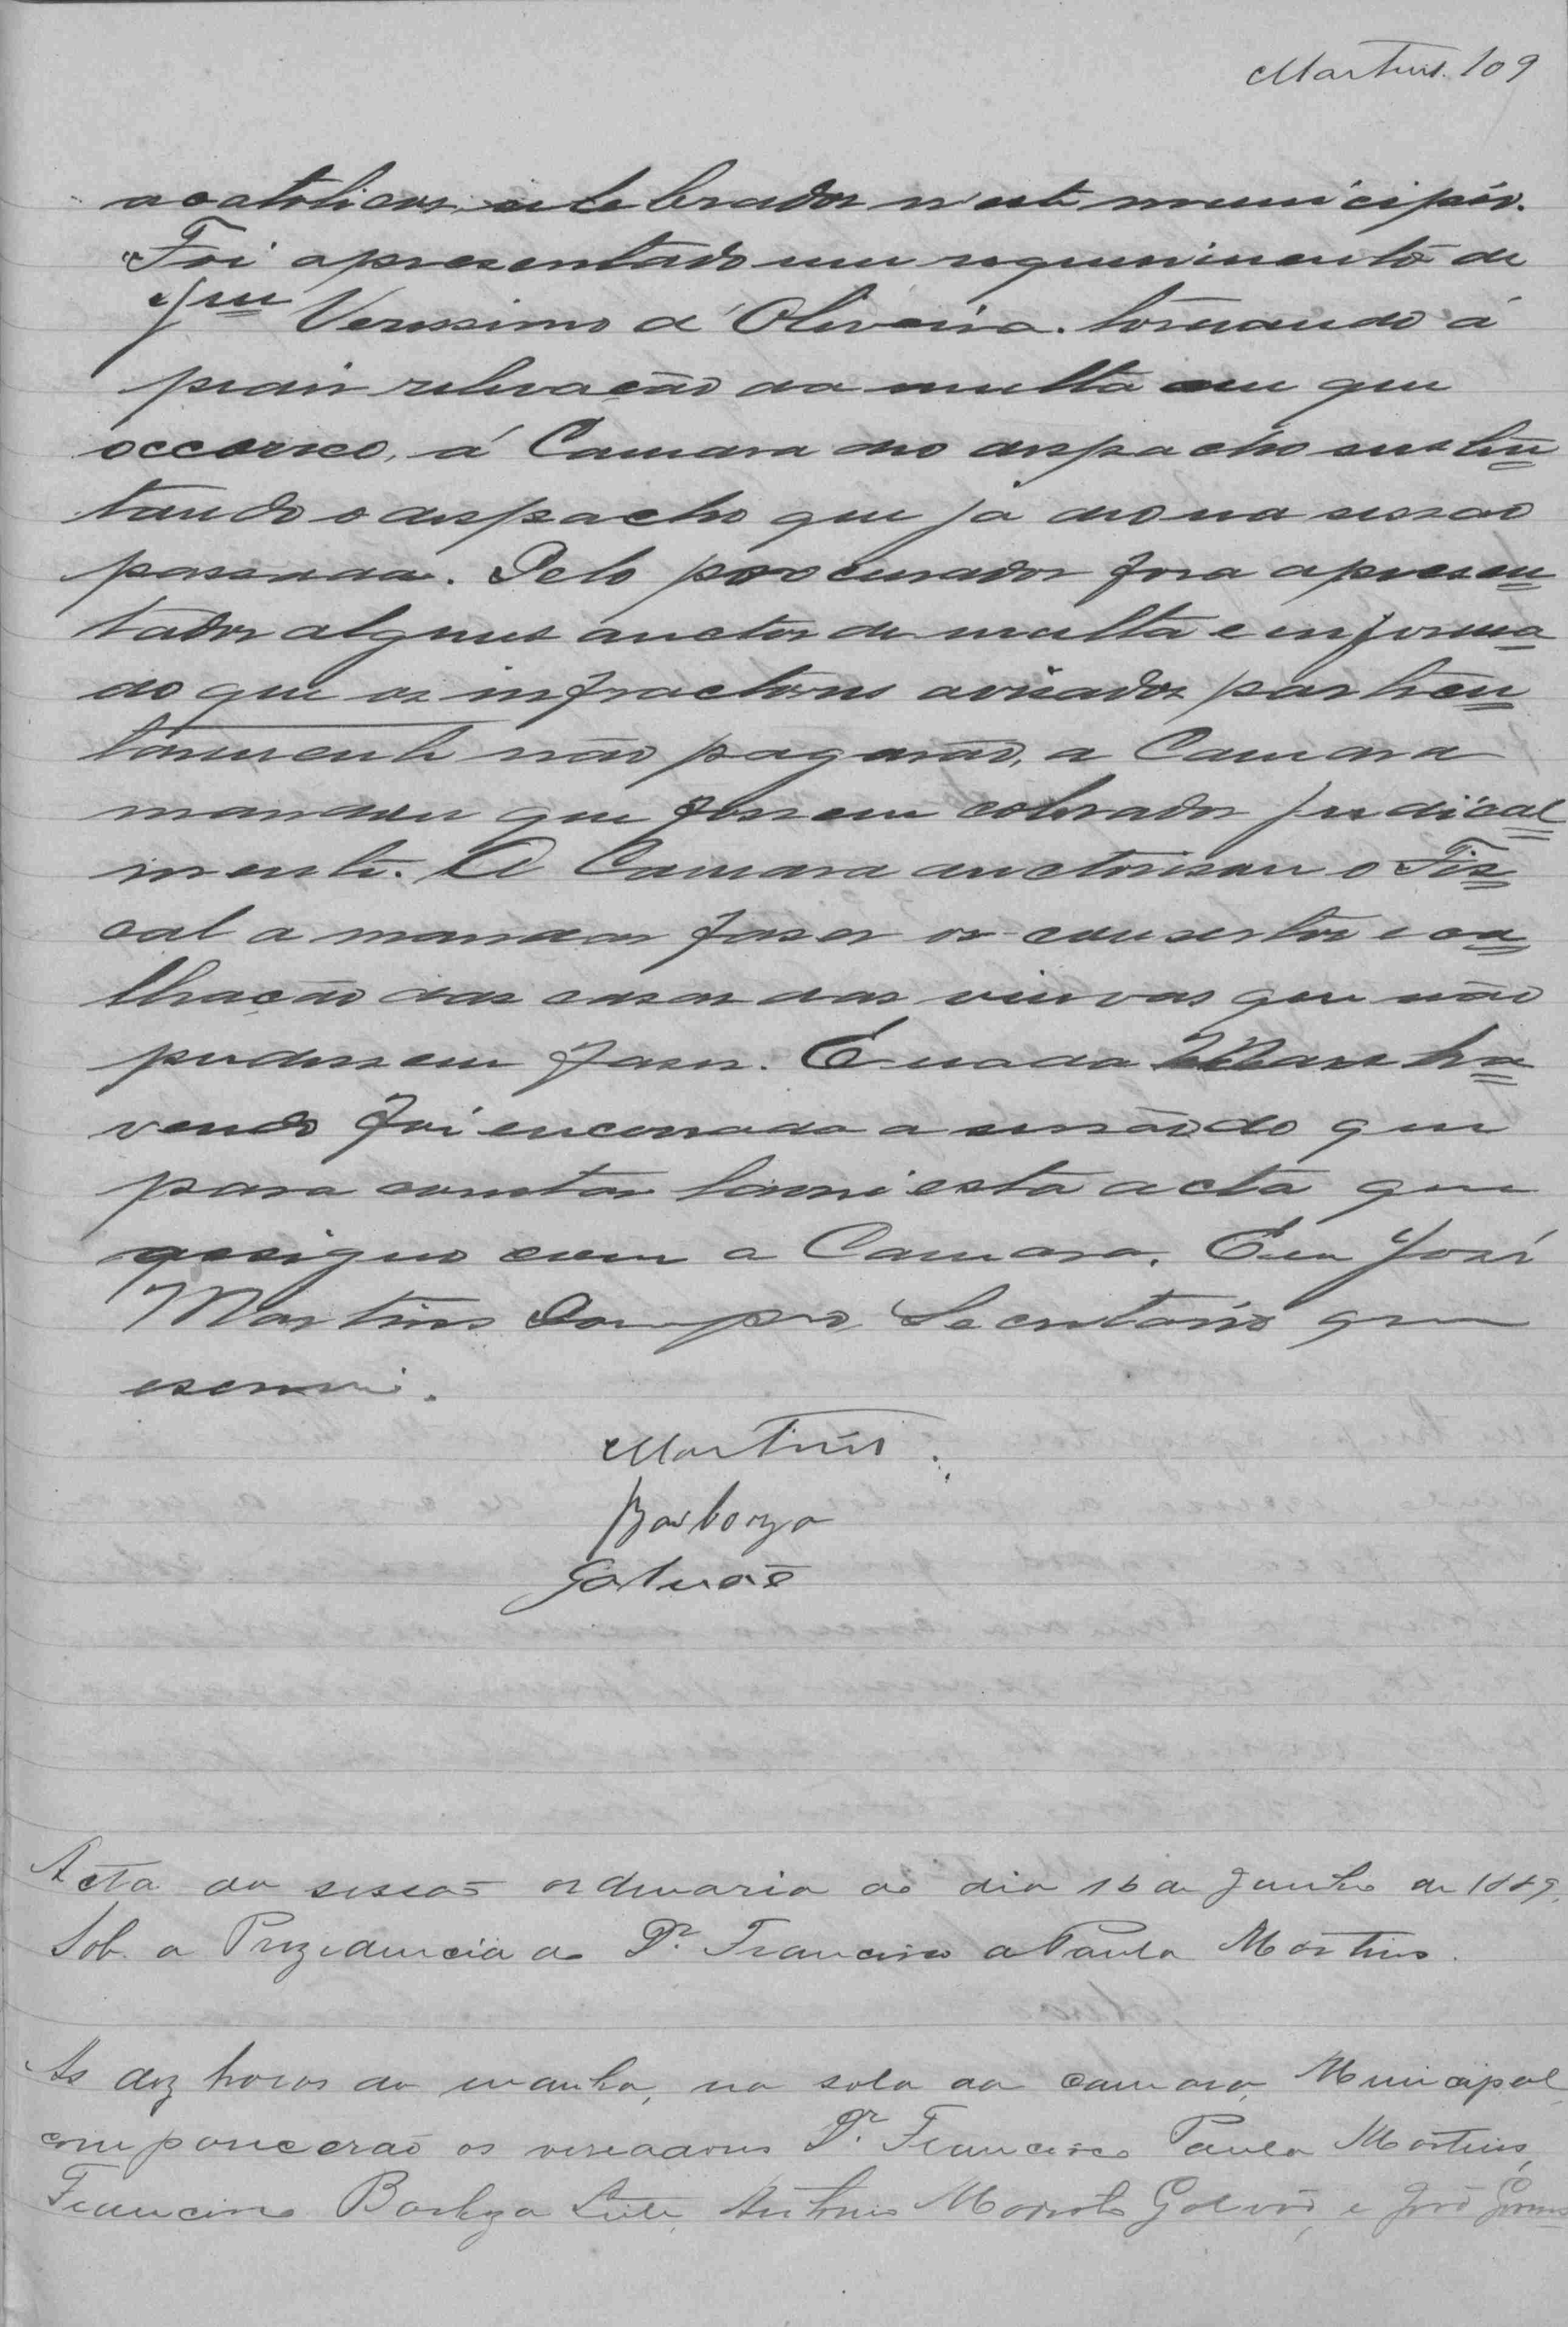 Martins. 109
acatolicos celebrados n'este municipio.
Foi apresentado um requerimento de
Jm Verissimo d'Oliveira. tornando á
pedir relevação da multa em que
occorreo, á Camara deo despacho susten
tando o despacho que já deo na sessão
passada. Pelo procurador fora apresen
tados alguns auctos de multa e informa
do que os infractores avisados particu
larmente não pagarão, a Camara
mandou que fossem cobrados judical
mente. A Camara auctorisou o Fis
cal a mandar faser os consertos e ca
lhação das casas das viuvas que não
pudessem faser. E nada Mais ha
vendo foi encerrada a sessão do que
para constar lavrei esta acta que
assigno com a Camara. Eu José
Martins Secretario que
escrevi.
Martins.
Barboza
Galvão
Acta da sessão ordenaria do dia 16 de Junho de 1889.
Sob a Prezidencia do Dr. Francisco de Paula Martins.
As dez horas da manha, na sala da camara Municipal
comparecerão os vereadores Dr. Francisco Paula Martins,
Francisco Barboza Leite, Antonio Galvão, e José Gomes